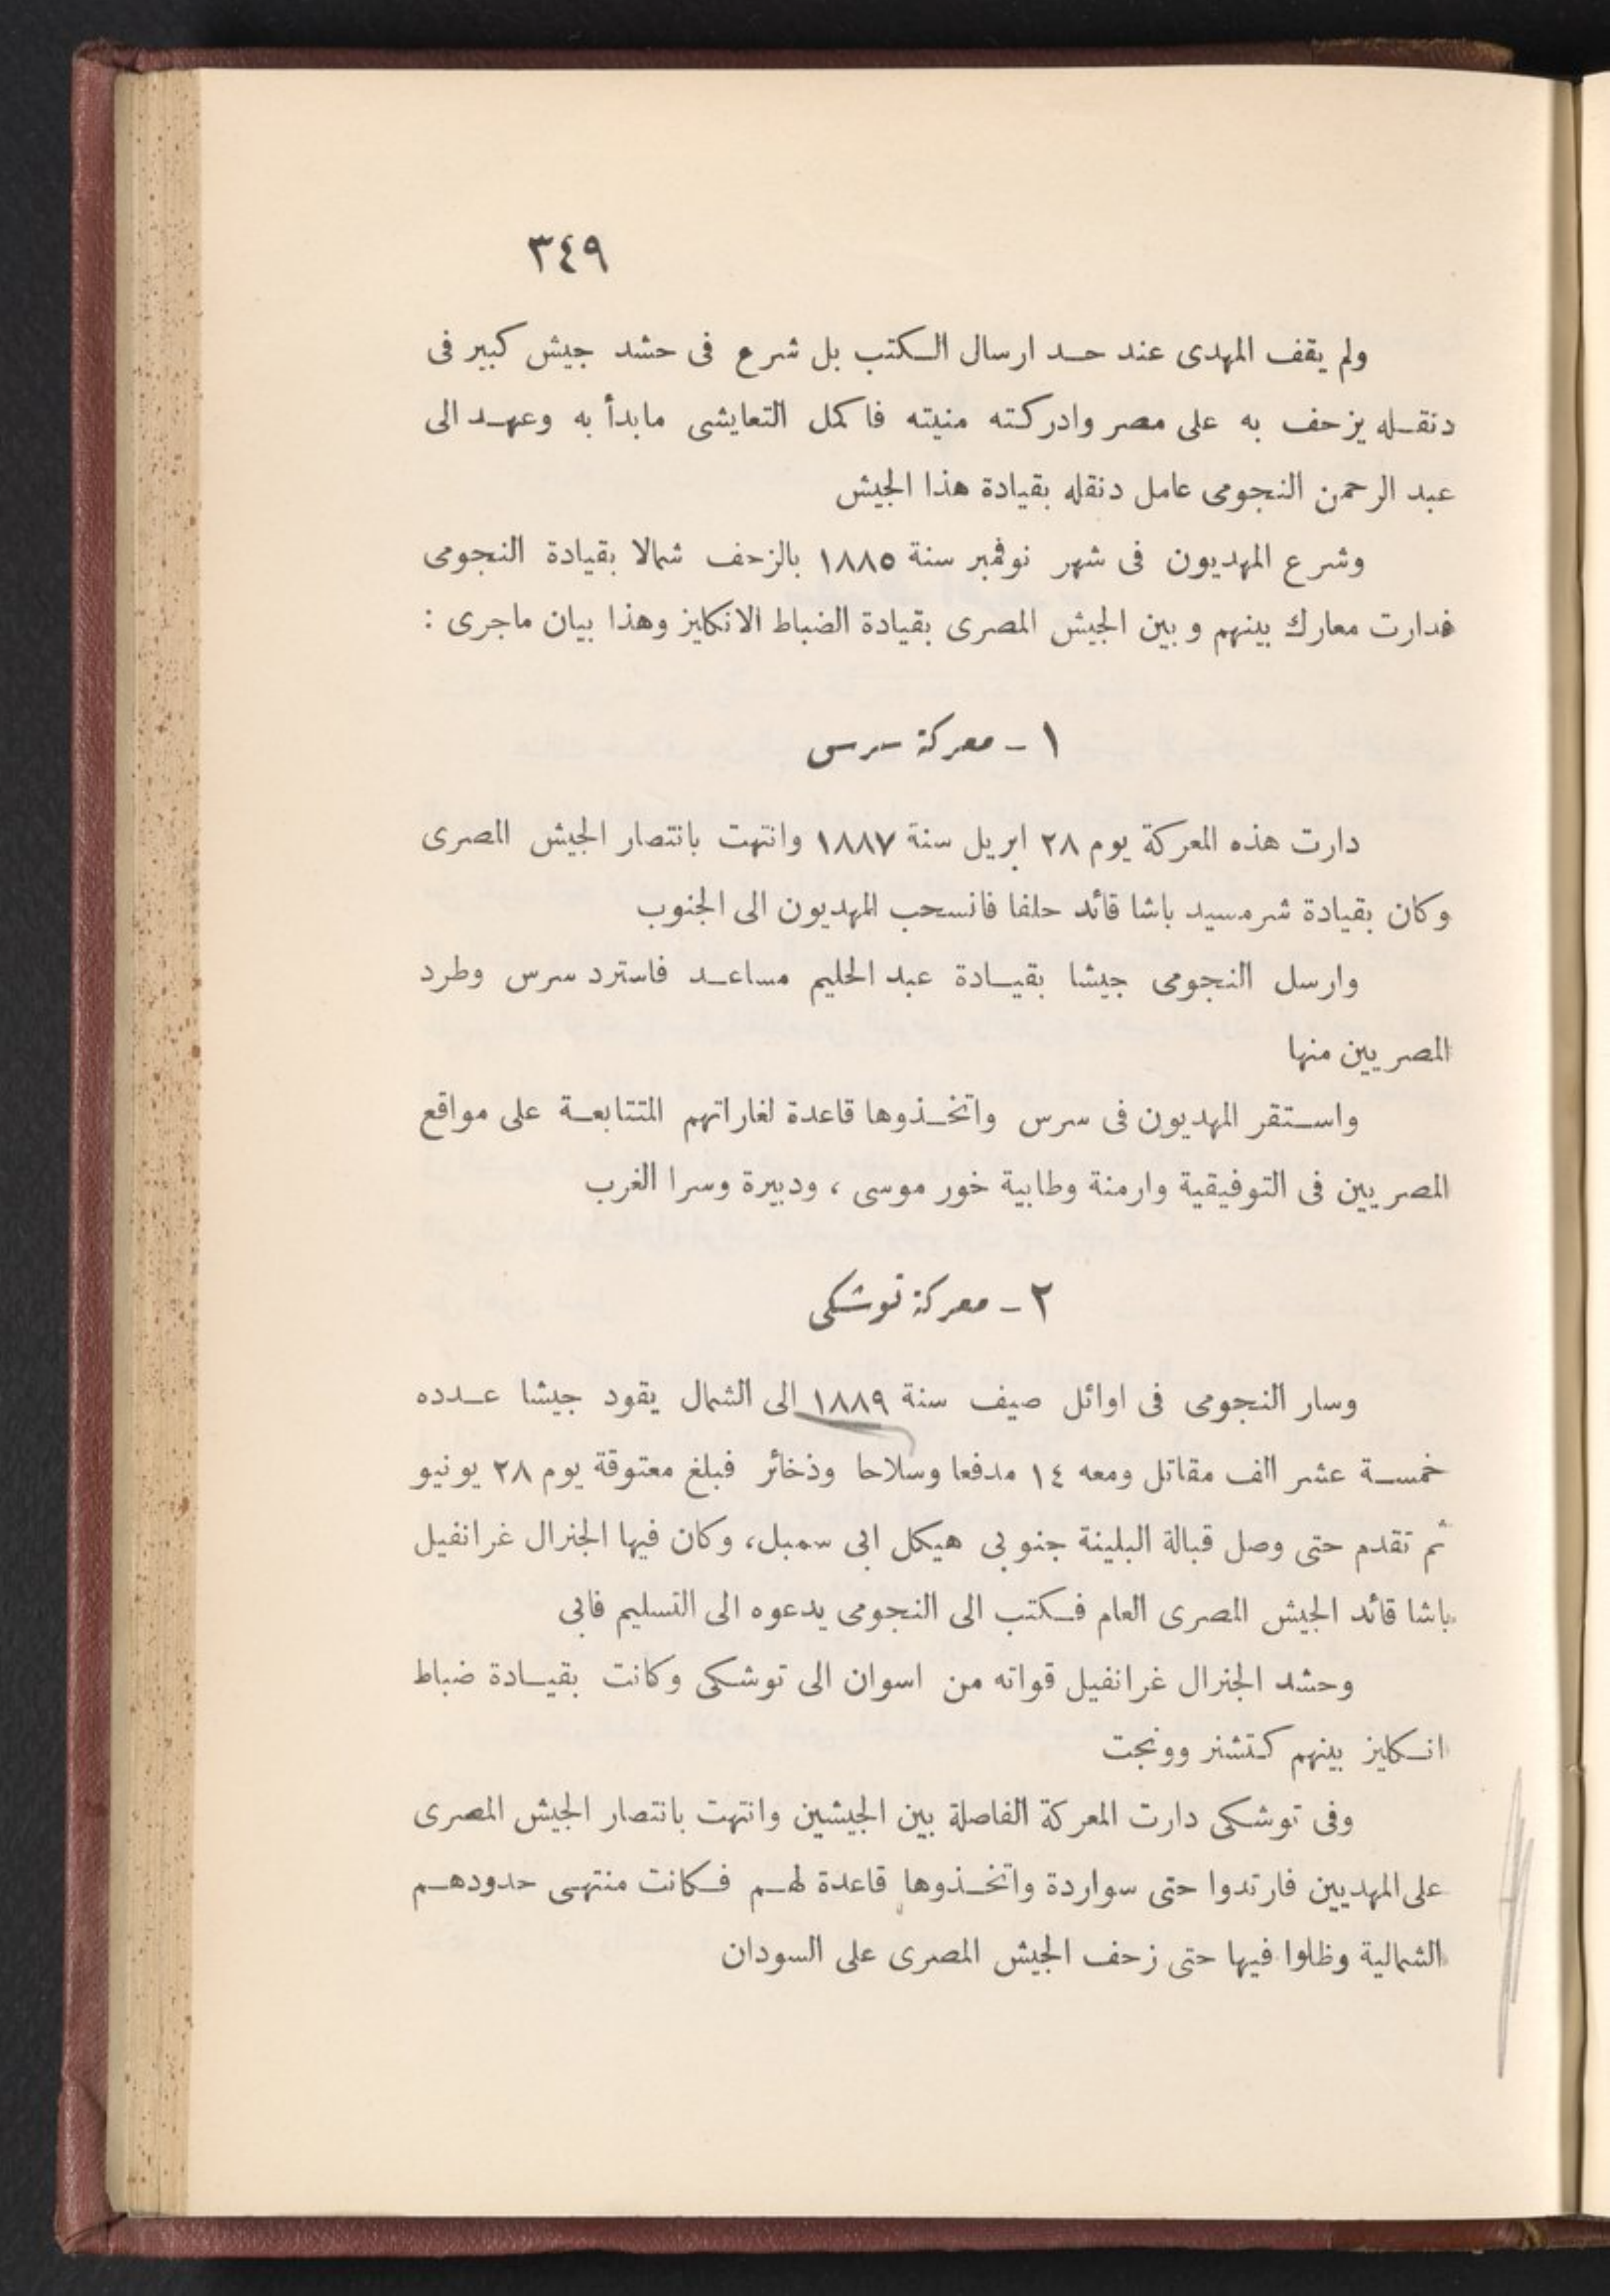 ٣٤٩
ولم يقف المهدى عند حد ارسال الكتب بل شرع فى حشد جيش كبير فى
دنقله يزحف به على مصر وادركته منيته فاكمل التعايشى مابدأ به وعهد الى
عبد الرحمن النجومى عامل دنقله بقيادة هذا الجيش
وشرع المهديون فى شهر نوفمبر سنة ١٨٨٥ بالزحف شمالا بقيادة النجومى
فدارت معارك بينهم وبين الجيش المصرى بقيادة الضباط الانكليز وهذا بيان ماجرى :
١ - معركة سرس
دارت هذه المعركة يوم ٢٨ ابريل سنة ١٨٨٧ وانتهت بانتصار الجيش المصرى
وكان بقيادة شرمسيد باشا قائد حلفا فانسحب المهديون الى الجنوب
وارسل النجومى جيشا بقيادة عبد الحليم مساعد فاسترد سرس وطرد
المصريين منها
واستقر المهديون فى سرس واتخذوها قاعدة لغاراتهم المتتابعة على مواقع
المصريين فى التوفيقية وارمنة وطابية خور موسى ، ودبيرة وسرا الغرب
٢ - معركة توشكى
وسار النجومى فى اوائل صيف سنة ١٨٨٩ الى الشمال يقود جيشا عدده
خمسة عشر الف مقاتل ومعه ١٤ مدفعا وسلاحا وذخائر فبلغ معتوقة يوم ٢٨ يونيو
ثم تقدم حتى وصل قبالة البلينة جنوبى هيكل ابى سمبل، وكان فيها الجنرال غرانفيل
باشا قائد الجيش المصرى العام فكتب الى النجومى يدعوه الى التسليم فابى
وحشد الجنرال غرانفيل قواته من اسوان الى توشكى وكانت بقيادة ضباط
انكليز بينهم كتشنر وونجت
وفى توشكى دارت المعركة الفاصلة بين الجيشين وانتهت بانتصار الجيش المصرى
على المهديين فارتدوا حتى سواردة واتخذوها قاعدة لهم فكانت منتهى حدودهم
الشمالية وظلوا فيها حتى زحف الجيش المصرى على السودان